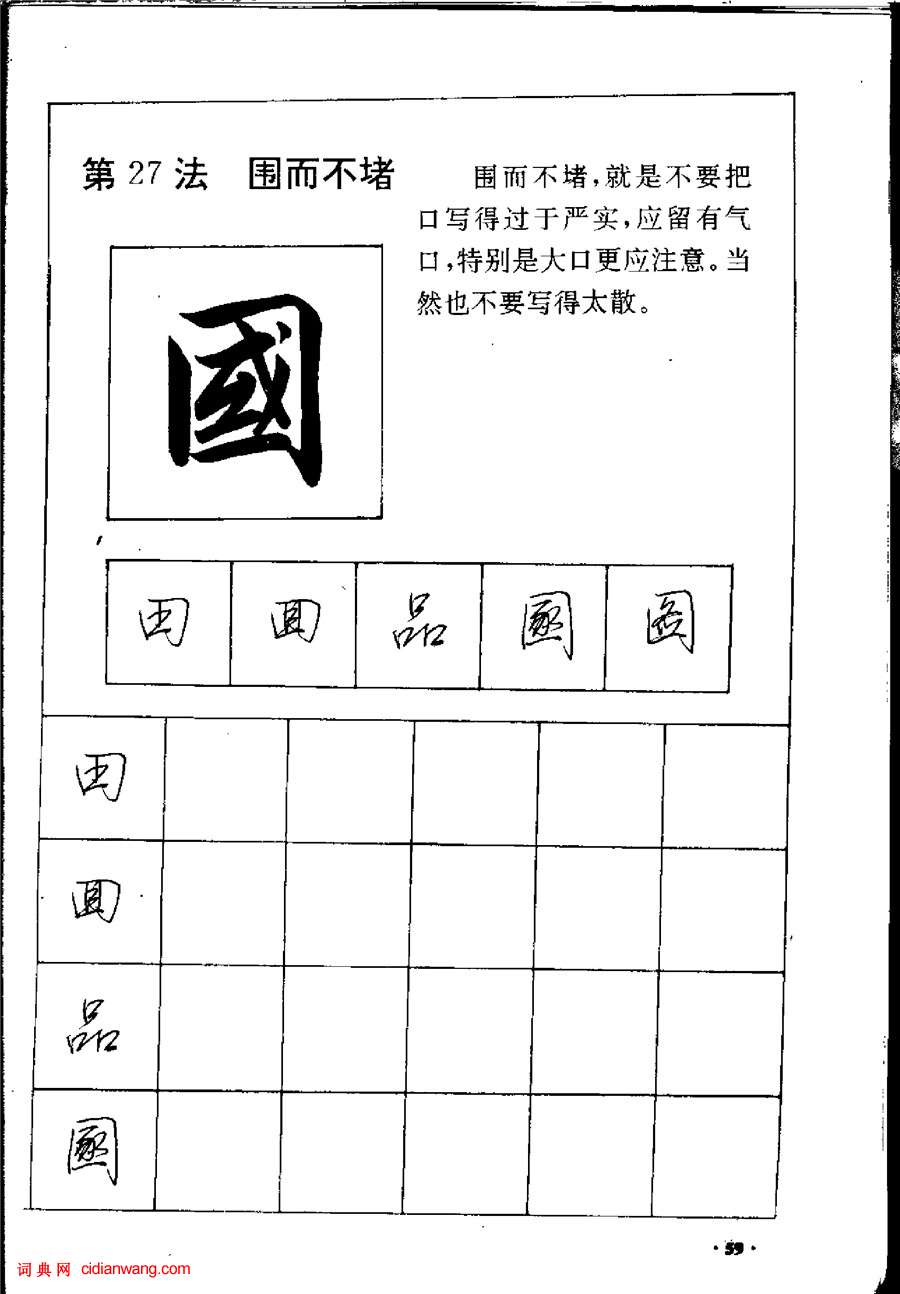 第27法 围而不堵
围而不堵,就是不要把
口写得过于严实,应留有气
口,特别是大口更应注意。当
然也不要写得太散。
國
田 品
田
品
·59·
词典网 cidianwang.com